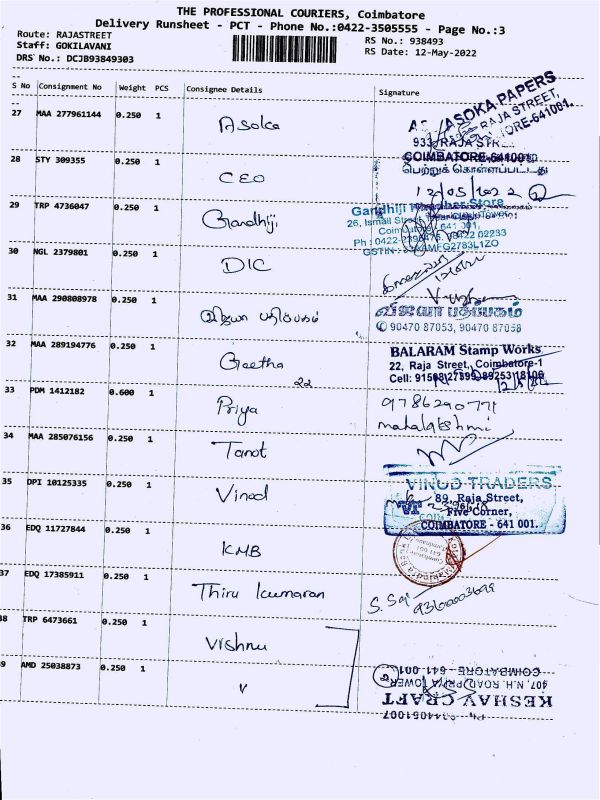 THE PROFESSIONAL COURIERS, Coimbatore
Delivery Runsheet - PCT - Phone No.:0422-3505555 - Page No.:3
Route: RAJASTREET
Staff: GOKILAVANI
DRS No.: DCJB93849303
RS No.: 938493
RS Date: 12-May-2022
S No Consignment No Weight PCS Consignee Details Signature
27 MAA 277961144 0.250 1 Asoka
ASOKA PAPERS
RAJA STREET,
933, RAJA STR
COIMBATORE-641001
பெற்றுக் கொள்ளப்பட்டது
12/05/2022
28 STY 309355 0.250 1 CEO
29 TRP 4736047 0.250 1 Gandhiji
Gandhiji Store
26, Ismail Street,
Coimbatore - 641 001,
30 NGL 2379801 0.250 1 DIC
31 MAA 290808978 0.250 1 விஜயா பதிப்பகம்
விஜயா பதிப்பகம்
90470 87053, 90470 87058
32 MAA 289194776 0.250 1 Geetha
22
BALARAM Stamp Works
22, Raja Street, Coimbatore-1
Cell: 91508 27399, 89253 18106
33 PDM 1412182 0.600 1 Priya
9786290771
mahalakshmi
34 MAA 285076156 0.250 1 Tanot
35 DPI 10125335 0.250 1 Vinod
VINOD TRADERS
VT
89, Raja Street,
Five Corner,
COIMBATORE - 641 001.
36 EDQ 11727844 0.250 1 KMB
37 EDQ 17385911 0.250 1 Thiru kumaran
38 TRP 6473661 0.250 1 Vishnu
39 AMD 25038873 0.250 1 V
KESHAV CRAFT
407, N.H. ROAD, PRIYA TOWER
COIMBATORE - 641 001